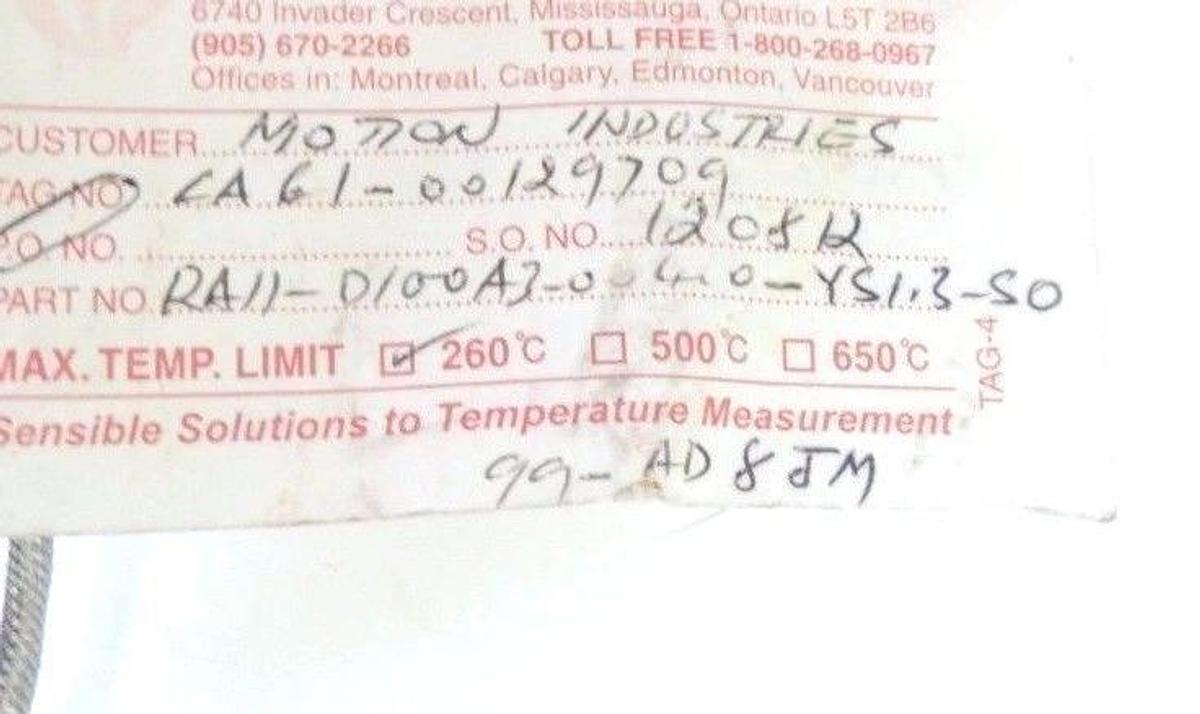 6740 Invader Crescent, Mississauga, Ontario L5T 2B6
(905) 670-2266 TOLL FREE 1-800-268-0967
Offices in: Montreal, Calgary, Edmonton, Vancouver
CUSTOMER MOTION INDUSTRIES
TAG NO CA61-00129709
P.O. NO. S.O. NO.
PART NO.
MAX. TEMP. LIMIT 260°C 500°C 650°C
TAG-4
Sensible Solutions to Temperature Measurement
99-AD8JM